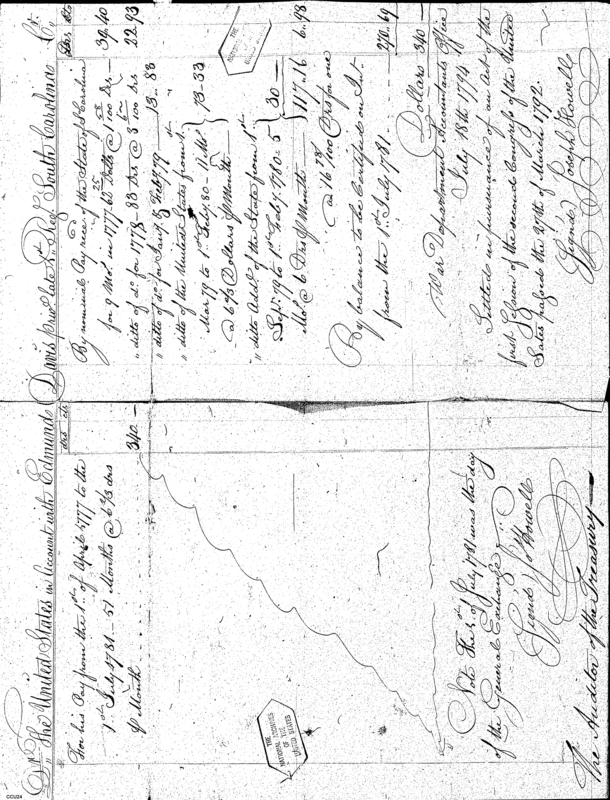 Dr. The United States in Account with Edmund Davis private 3d Regt South Carolina Cr.
drs cts
For his Pay from the 1st of April 1777 to the
1st July 1781 - 51 Months @ 6 2/3 drs
p Month 340. -
Note The 1st of July 1781 was the day
of the General Exchange
Signed Jos Howell
The Auditor of the Treasury
Dolrs cts
By nominal Pay recd of the State of So Carolina
for 9 Mos. in 1777 @ 100 Drs 34.40
" ditto of do for 1778 @ 100 drs 22.93
" ditto of do for Jany & Feby 79 13.88
" ditto of the United States from 1st
Mar 79 to 1st Feby 80 - 11 Mos
@ 6 2/3 Dollars p Month } 73-33
" ditto Addl of the State from 1st
Sept 79 to 1st Feby 1780 - 5
Mos @ 6 Drs p Month } 30 - } 117.16
@ 16 78/100 Drs for one 6.98
By balance to be Certified on Int
from the 1st July 1781 270.69
Dollars 340 -
War Department Accountants Office
July 18th 1794
Settled in pursuance of an Act of the
first Session of the second Congress of the United
States passed the 27th of March 1792.
Signed Joseph Howell
THE
NATIONAL ARCHIVES
OF THE
UNITED STATES
CCU24